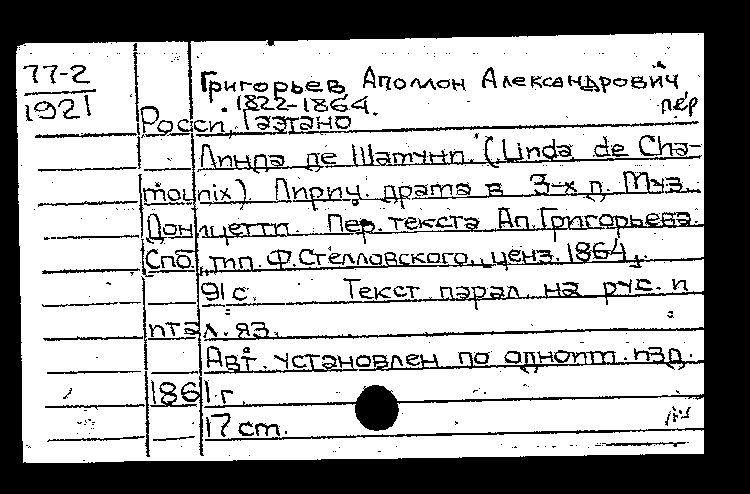 77-2
1921
Григорьев Аполлон Александрович
1822-1864. пер
Росси, Гаэтано
Линда де Шамуни. (Linda de Cha-
mounix) Лирич. драма в 3-х д. Муз.
Доницетти. Пер. текста Ап. Григорьева.
Спб., тип. Ф. Стелловского, ценз. 1864.
91 с. Текст парал. на рус. и
итал. яз.
Авт. установлен по однотип. изд.
1861 г.
17 cm.